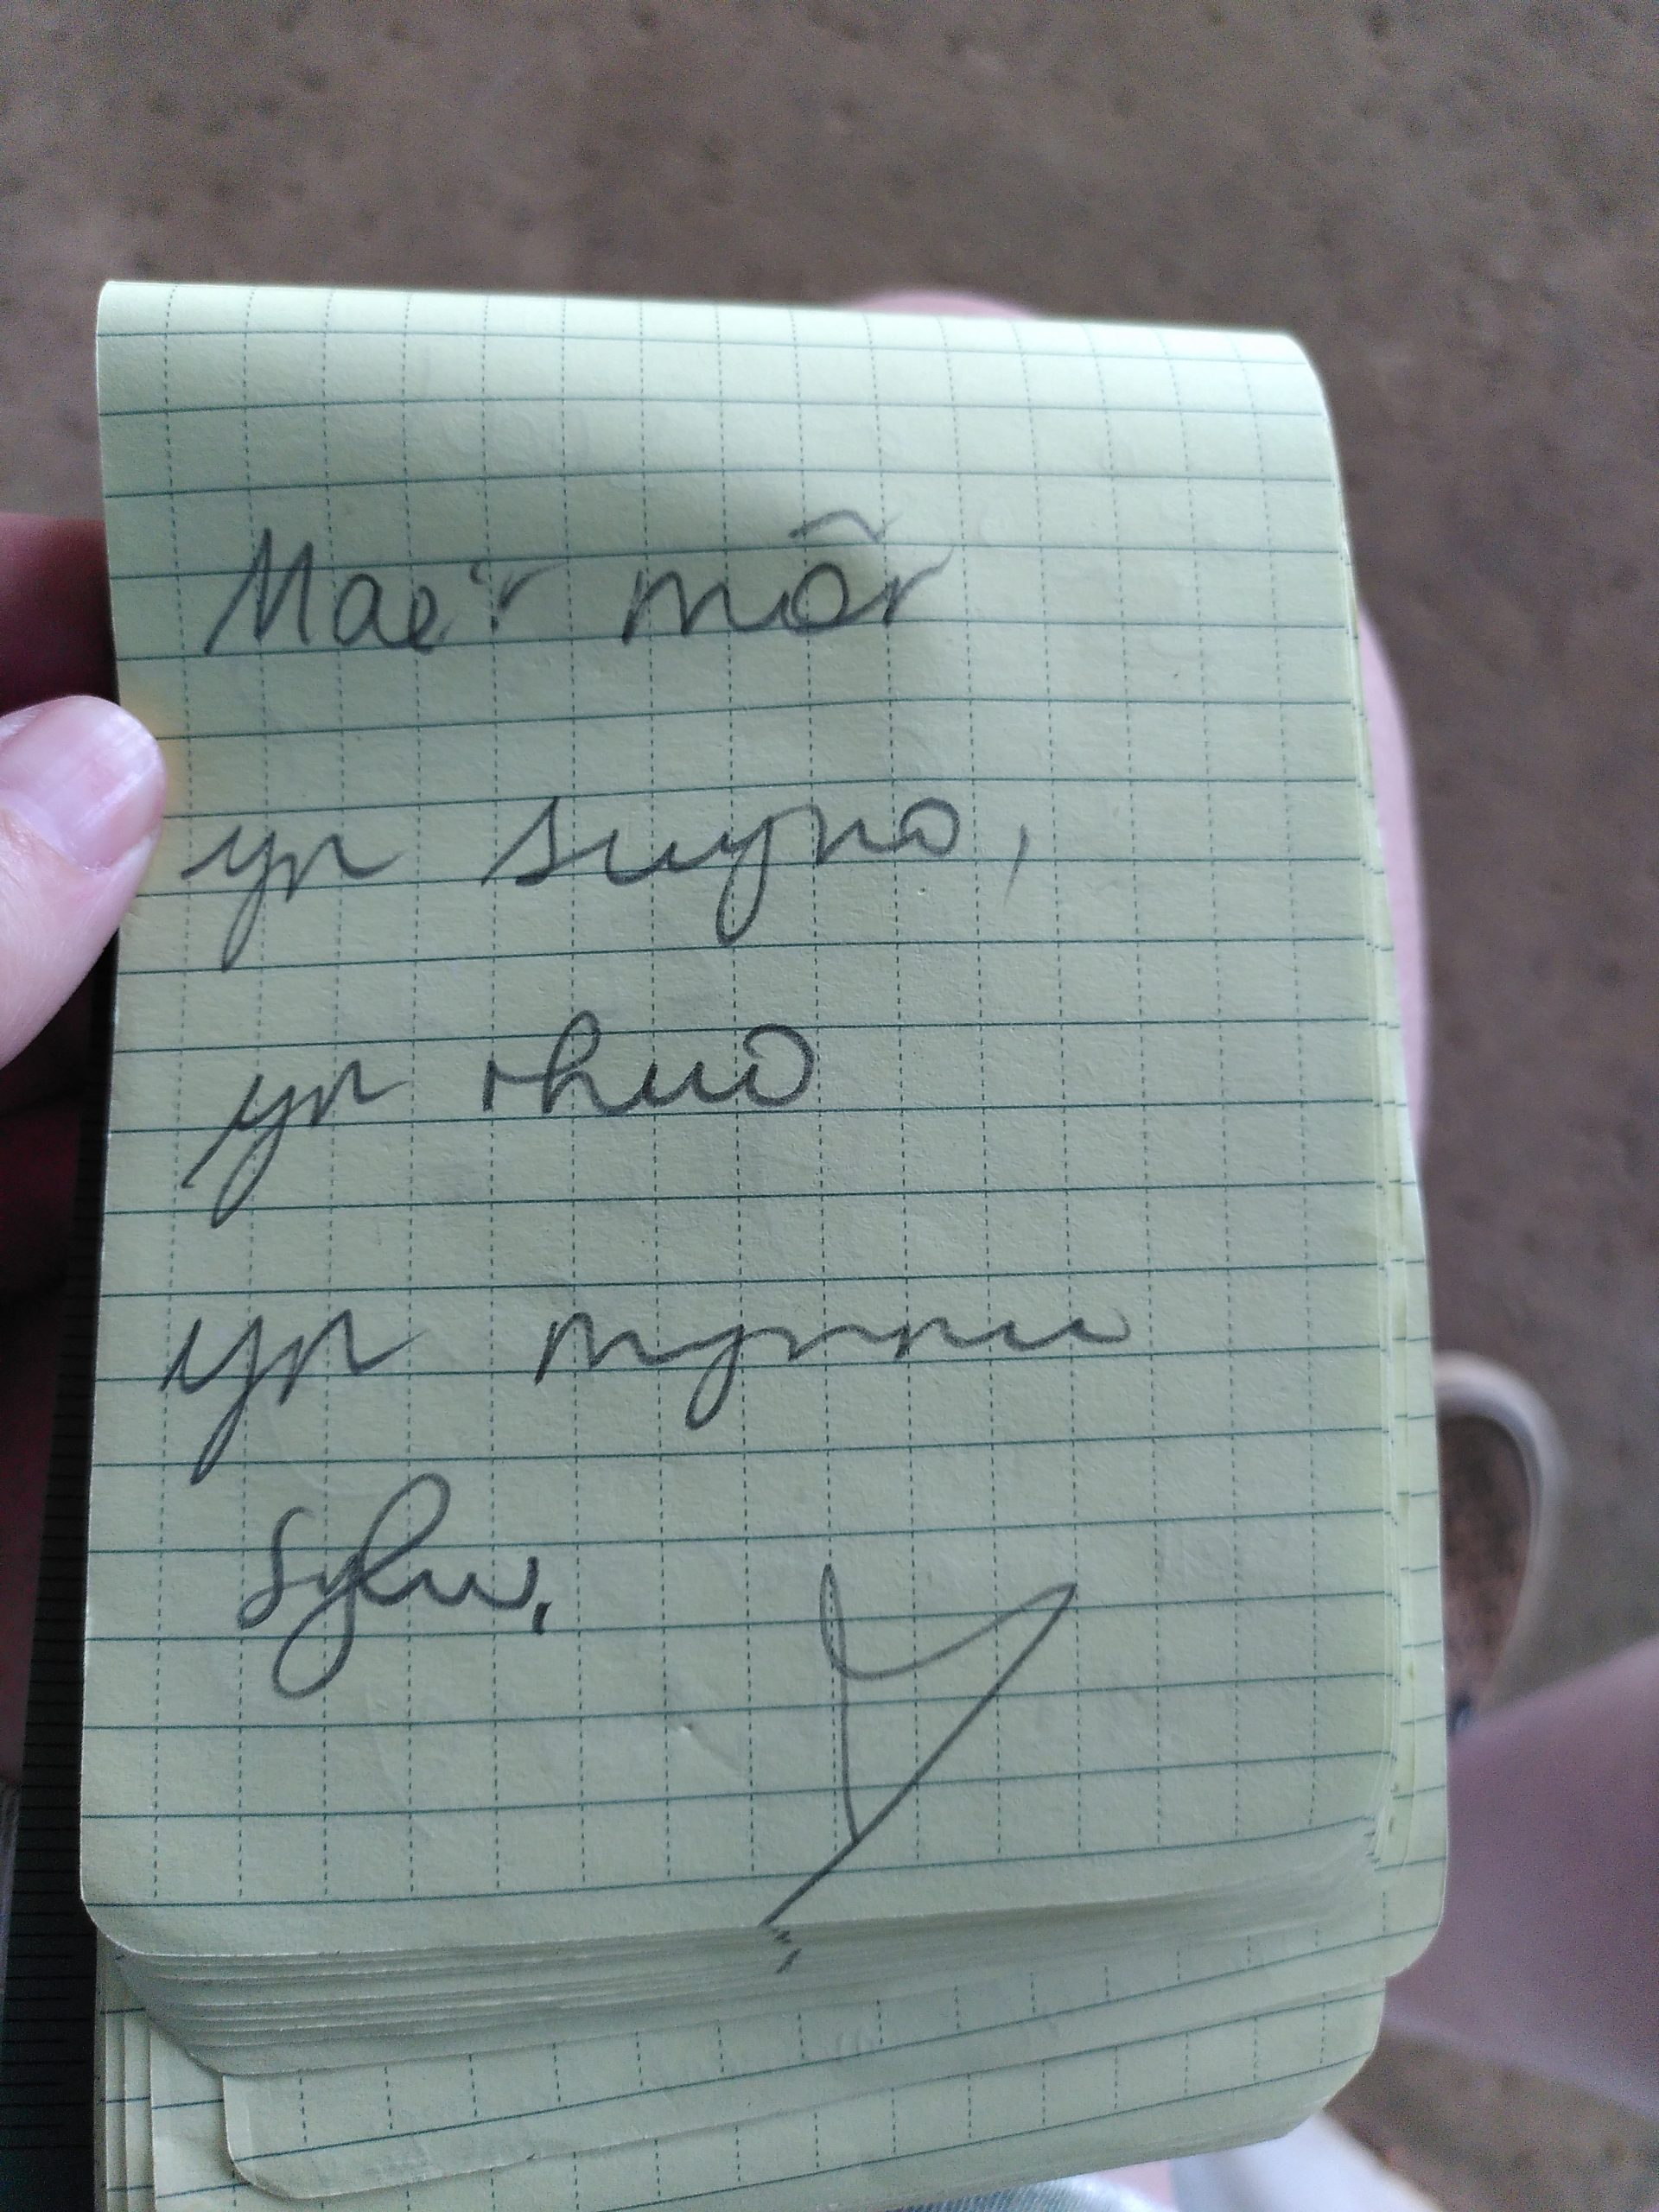 Mae'r môr
yn suyno,
yn rhuo
yn mynnu
sylw.